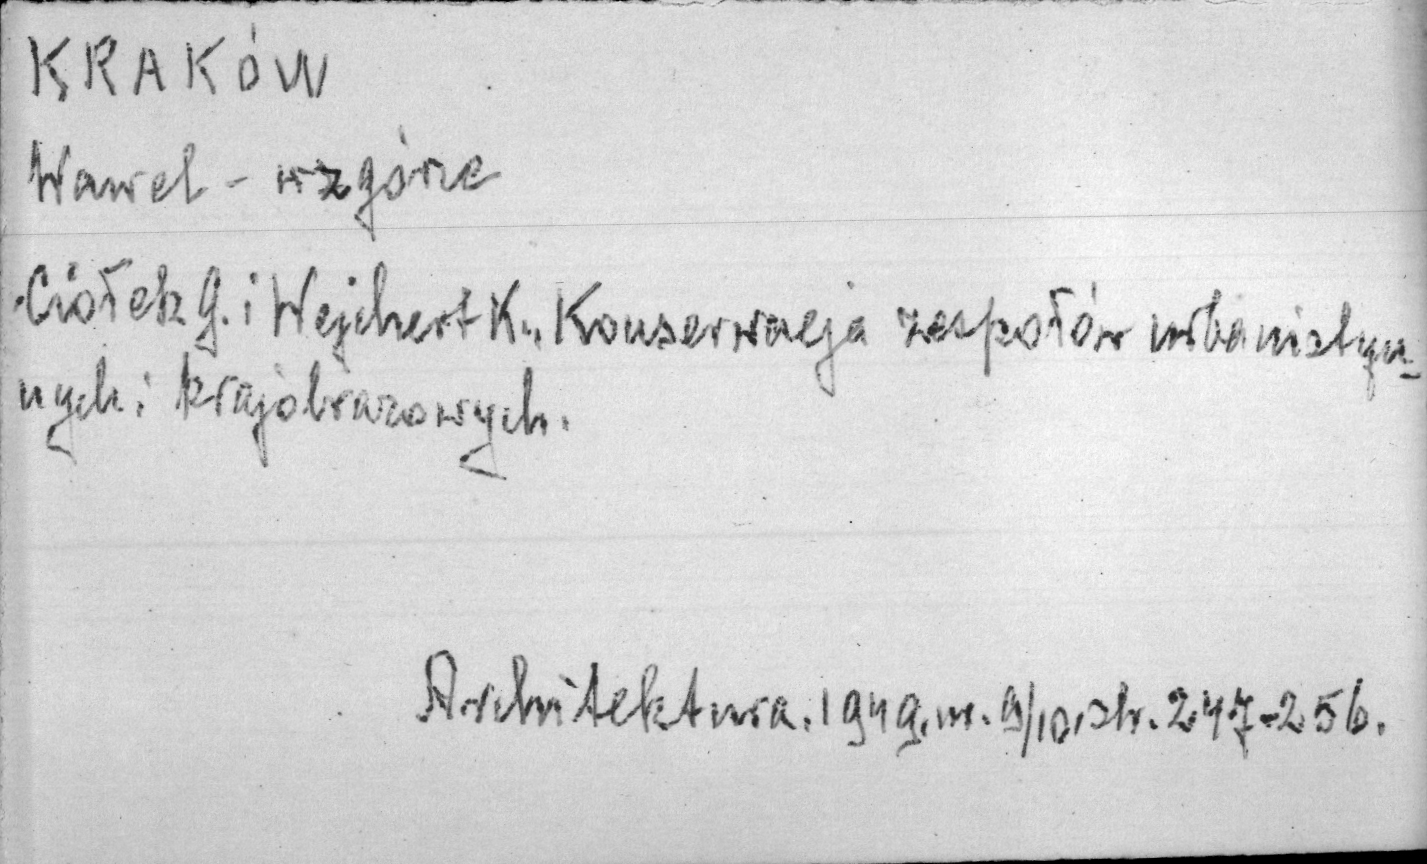 KRAKÓW
Wawel - wzgórze
Ciołek G. i Wejchert K., Konserwacja zespołów urbanistycz-
nych i krajobrazowych.
Architektura. 1949, nr. 9/10, str. 247-256.